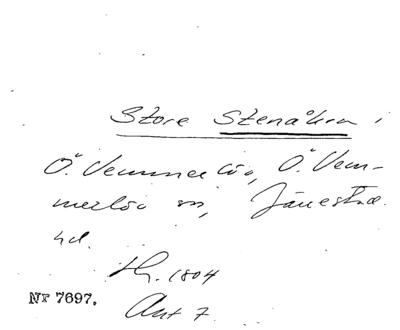 Store Stenåkra i
Ö. Vemmerlöv, Ö. Vem-
merlöv sn, Järrestad
hd.
Hr. 1804
Akt 7
Nr 7697.